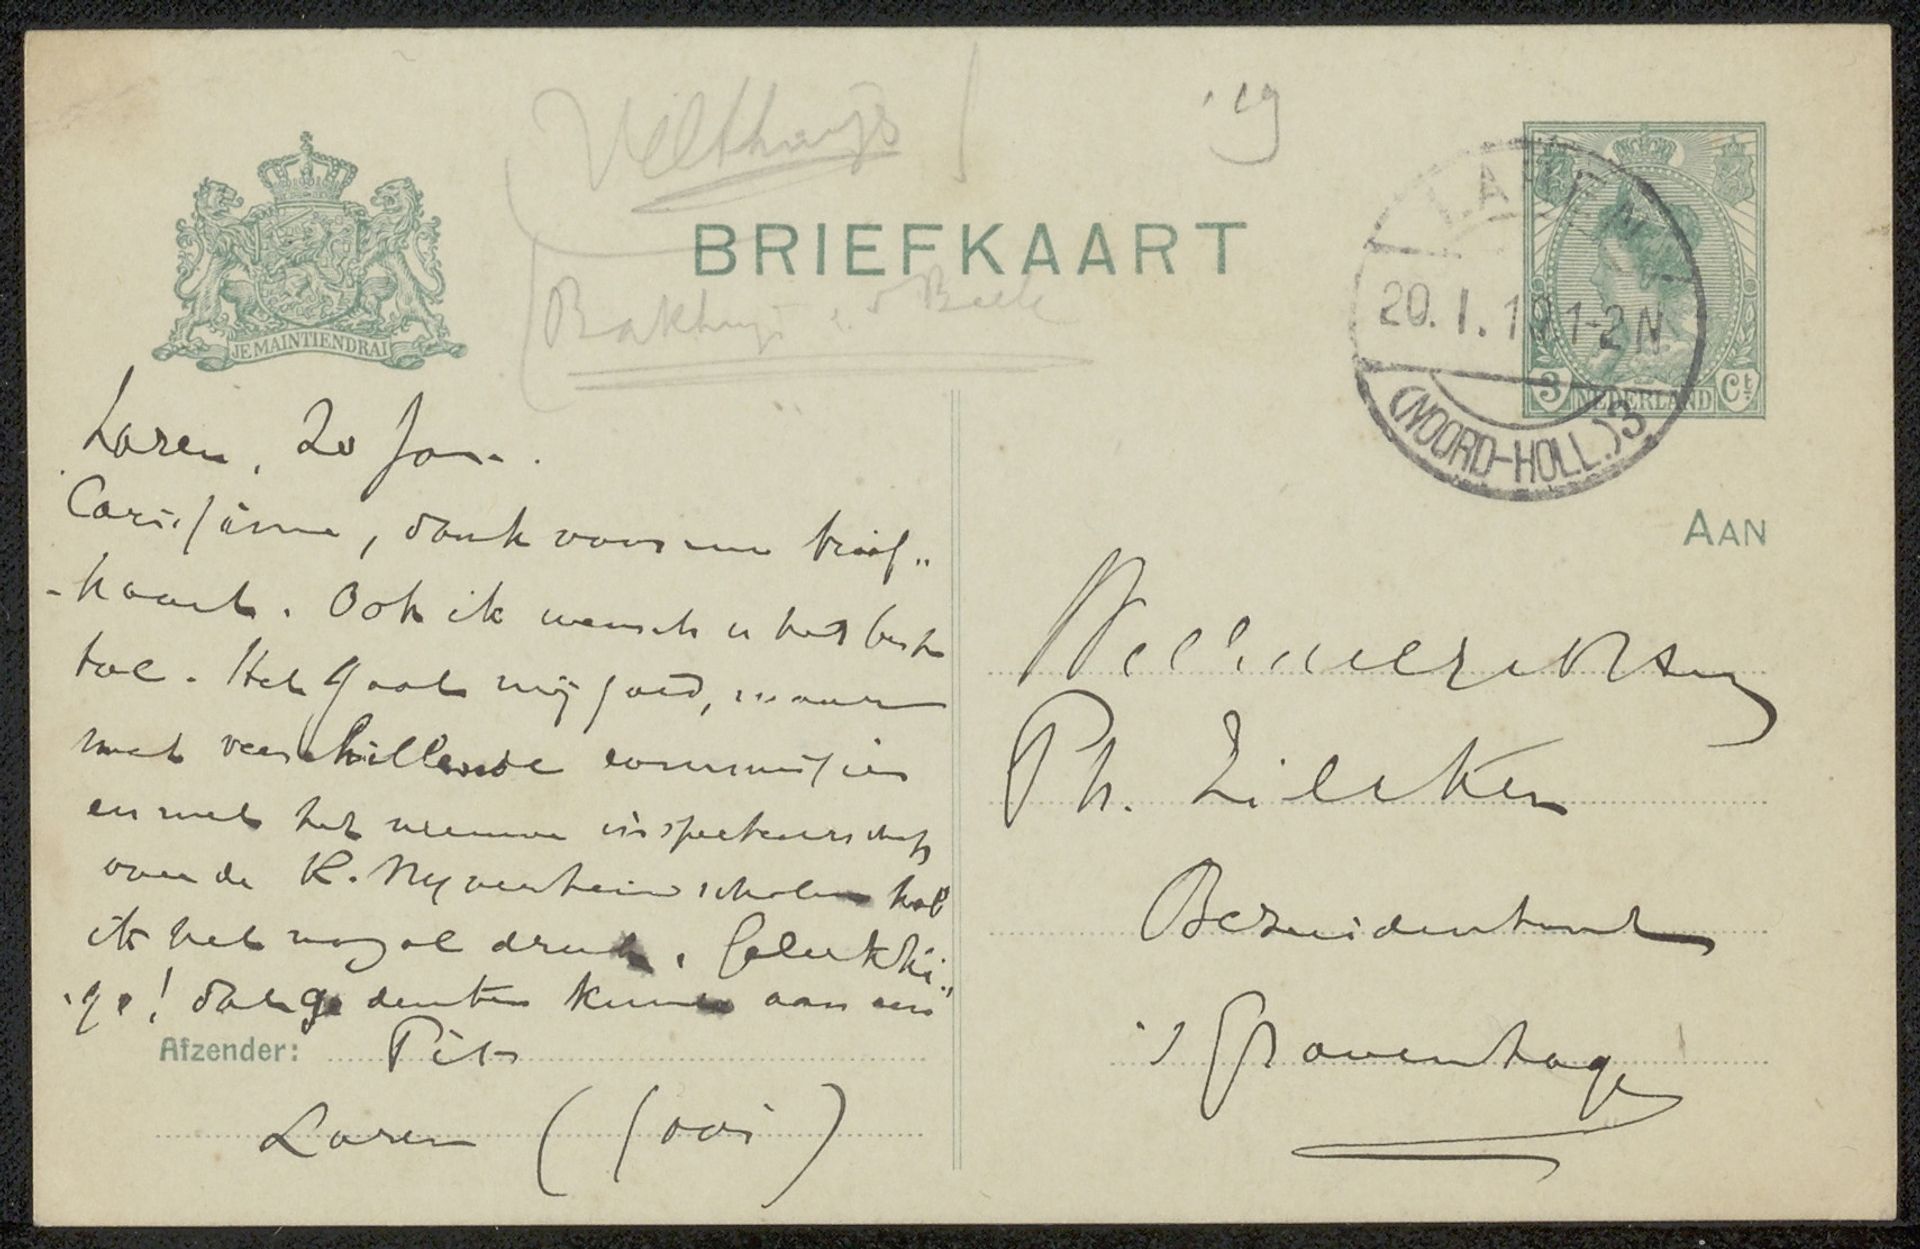 Velthuys
'19
BRIEFKAART
Bakhuyz v. d Beek
JE MAINTIENDRAI
LAREN
20.1.19 1-2N
(NOORD-HOLL.) 3
3 NEDERLAND Ct
Laren, 20 Jan.
Carissime, dank voor uw brief„
-kaart. Ook ik wensch u het beste
toe. Het gaat mij goed, maar
met verschillende commissies
en met het nieuwe inspecteurschap
van de R. Nyverheidscholen heb
ik het nogal druk. Gelukki„
„ge! dat ge denken kunt aan een
Afzender: Pit
Laren (Gooi)
AAN
Ph. Zilcken
Bezuidenhout
's Gravenhage